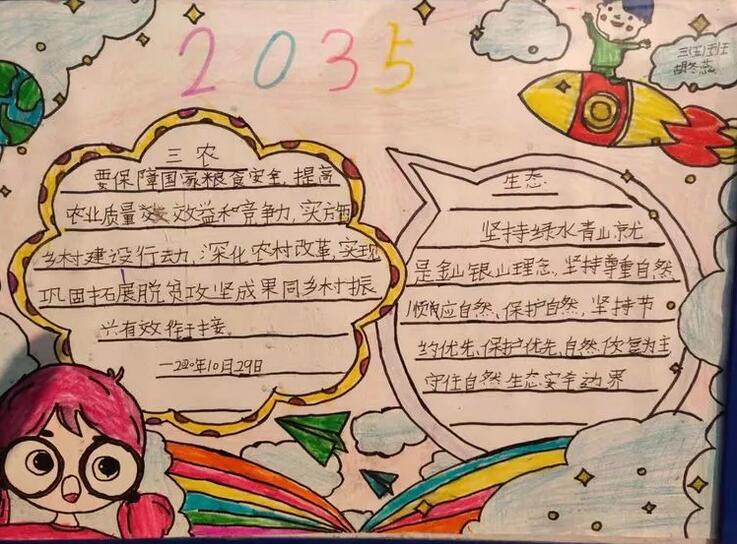 2035
三(五)班
胡冬蕊
三农
要保障国家粮食安全,提高
农业质量效效益和竞争力,实方面
乡村建设行动,深化农村改革,实现
巩固拓展脱贫攻坚成果同乡村振
兴有效作干接。
一2020年10月29日
生态
坚持绿水青山就尤
是金山银山理念,坚持尊重自然
顺应自然、保护自然,坚持节
约优先、保护优先,自然恢复为主
守住自然生态安全边界